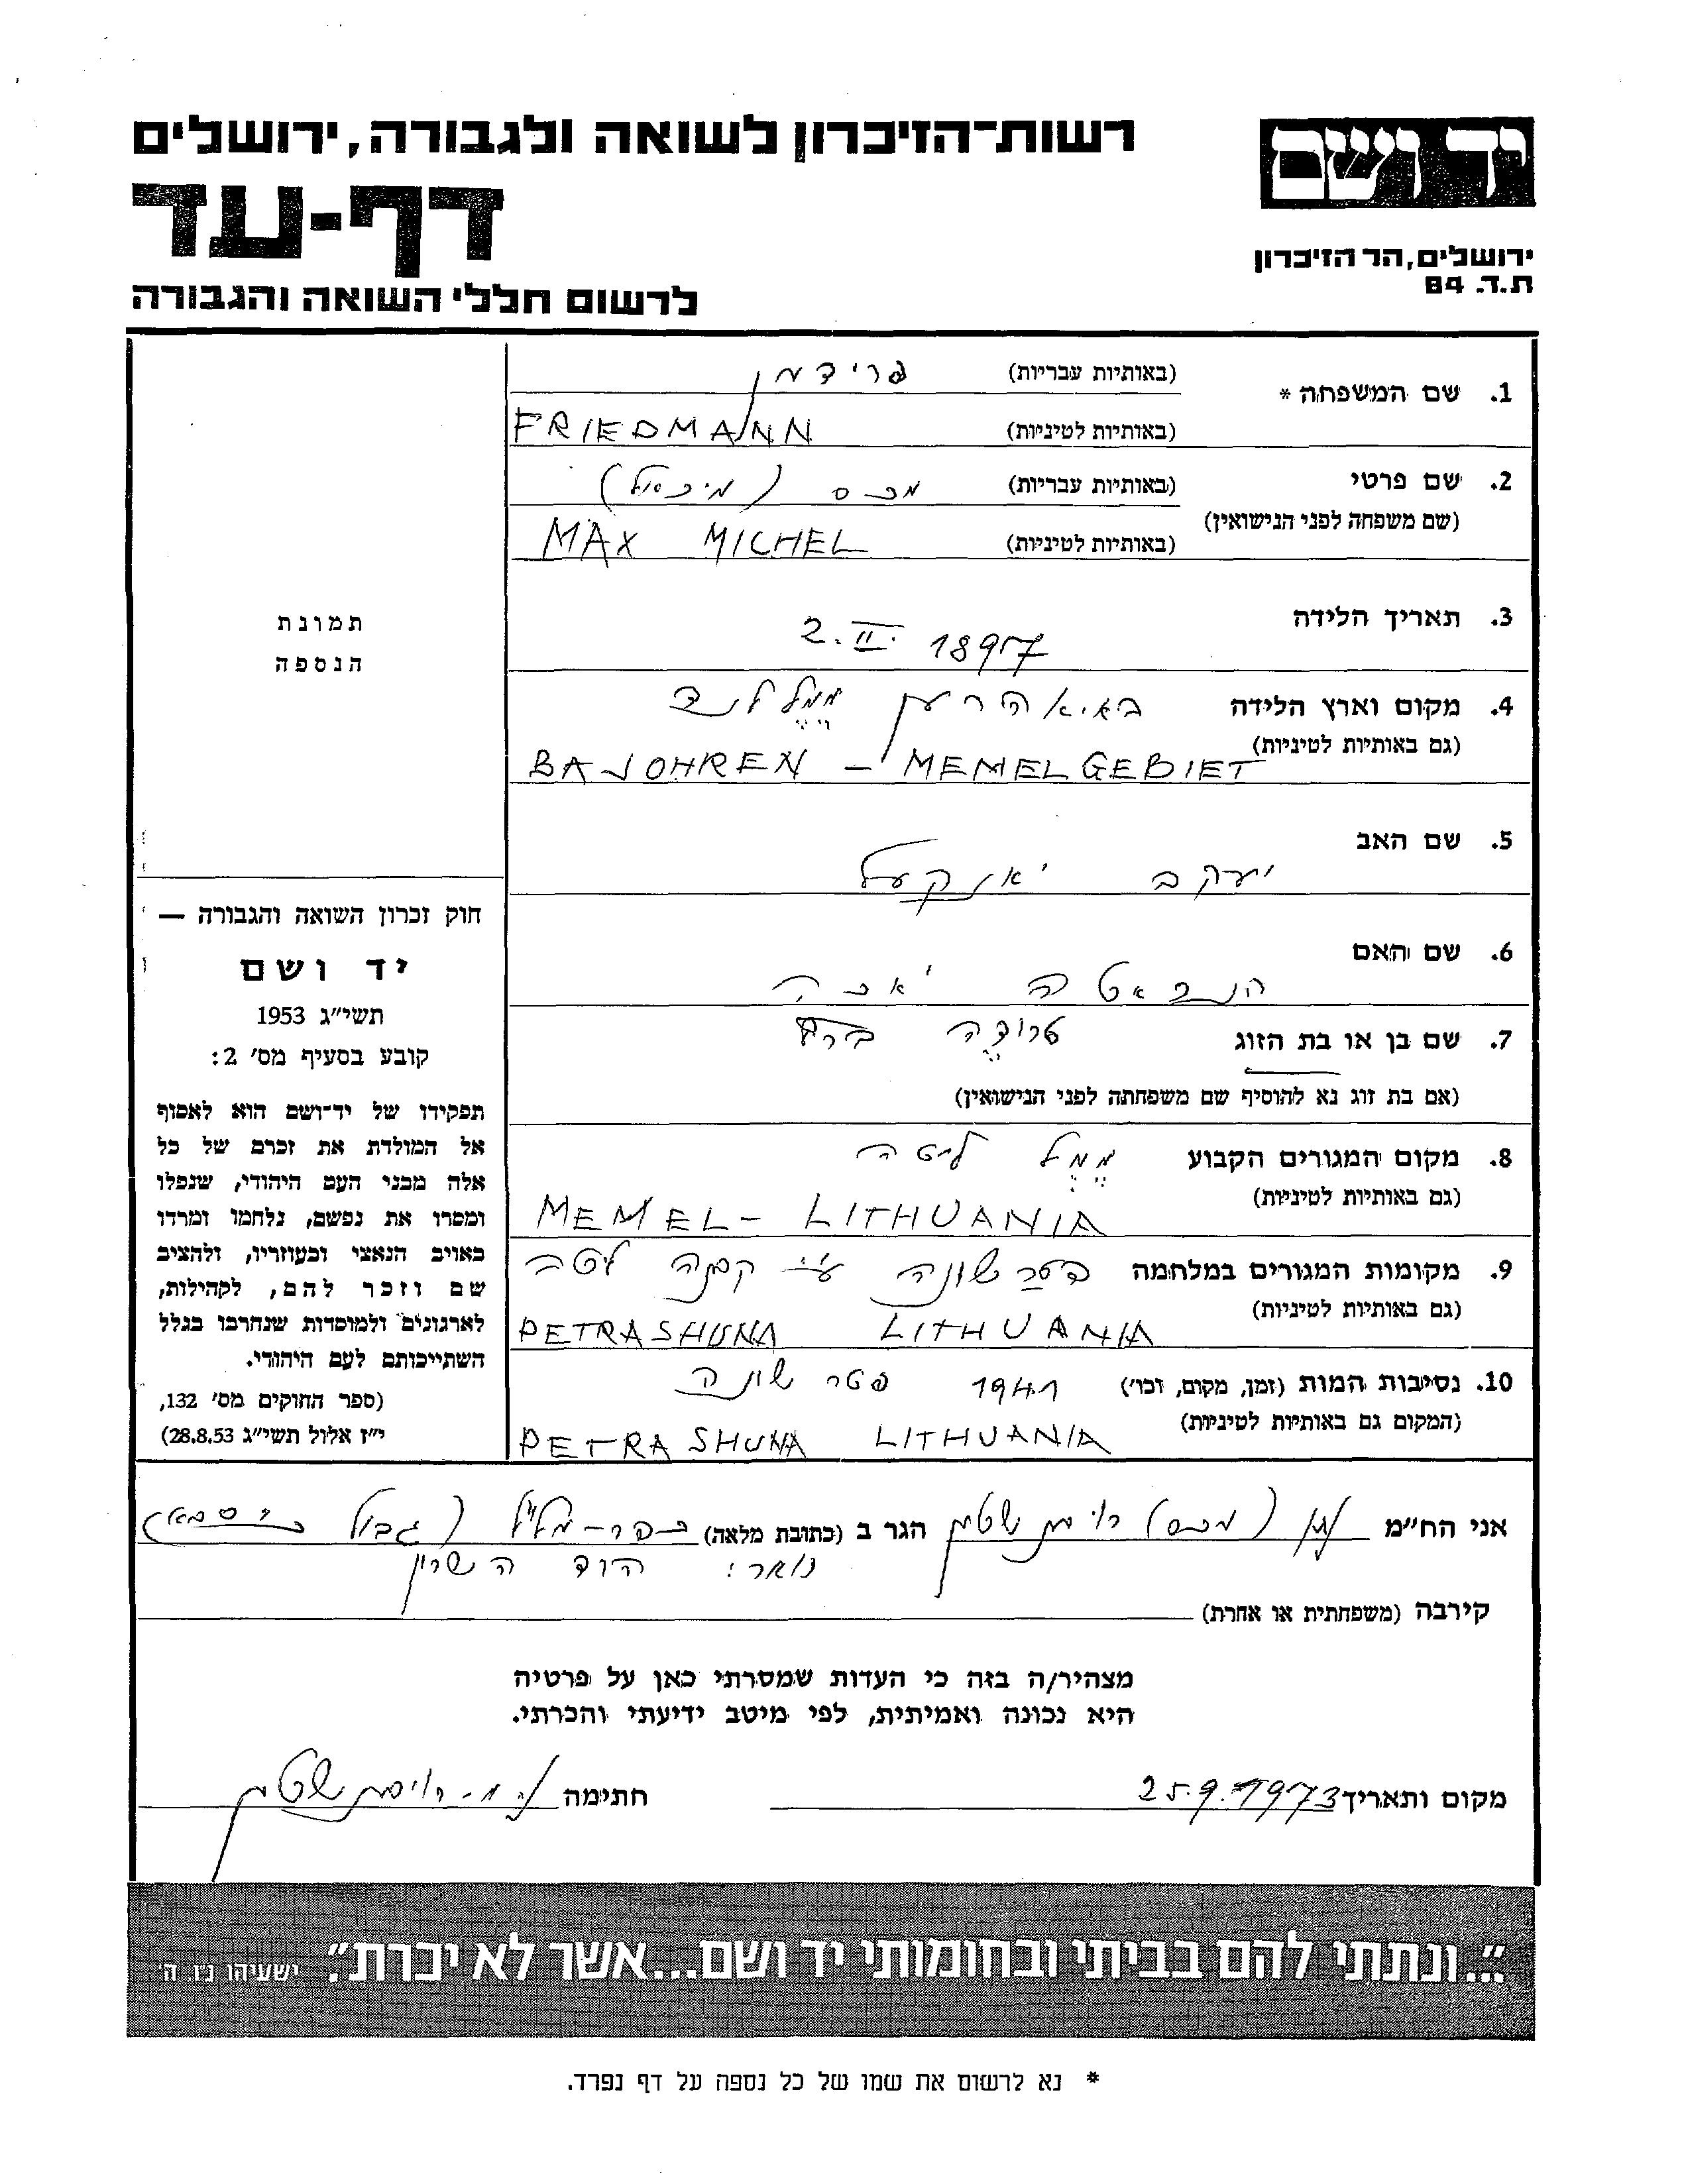 רשות-הזיכרון לשואה ולגבורה, ירושלים
דף-עד
לרשום חללי השואה והגבורה
יד ושם
ירושלים, הר הזיכרון
ת.ד. 84
1. שם המשפחה * (באותיות עבריות) פרידמן
(באותיות לטיניות) FRIEDMANN
2. שם פרטי (באותיות עבריות) מכס (מיכאל)
(שם משפחה לפני הנישואין)
(באותיות לטיניות) MAX MICHEL
3. תאריך הלידה 2.II.1897
4. מקום וארץ הלידה באיאהרען ממללנד
(גם באותיות לטיניות) BAJOHREN – MEMELGEBIET
5. שם האב יעקב יאנקעל
6. שם האם
7. שם בן או בת הזוג טרודה
(אם בת זוג נא להוסיף שם משפחתה לפני הנישואין)
8. מקום המגורים הקבוע ממל ליטה
(גם באותיות לטיניות) MEMEL – LITHUANIA
9. מקומות המגורים במלחמה פטרשונה ע"י קבנה ליטה
(גם באותיות לטיניות) PETRASHUNA LITHUANIA
10. נסיבות המות (זמן, מקום, וכו') 1941 פטרשונה
(המקום גם באותיות לטיניות) PETRASHUNA LITHUANIA
תמונת
הנספה
חוק זכרון השואה והגבורה —
יד ושם
תשי"ג 1953
קובע בסעיף מס' 2:
תפקידו של יד-ושם הוא לאסוף
אל המולדת את זכרם של כל
אלה מבני העם היהודי, שנפלו
ומסרו את נפשם, נלחמו ומרדו
באויב הנאצי ובעוזריו, ולהציב
שם וזכר להם, לקהילות,
לארגונים ולמוסדות שנחרבו בגלל
השתייכותם לעם היהודי.
(ספר החוקים מס' 132,
י"ז אלול תשי"ג 28.8.53)
אני הח"מ (מכס) רובינשטין הגר ב (כתובת מלאה) כפר-מל"ל (גבול
דואר: הוד השרון
קירבה (משפחתית או אחרת)
מצהיר/ה בזה כי העדות שמסרתי כאן על פרטיה
היא נכונה ואמיתית, לפי מיטב ידיעתי והכרתי.
מקום ותאריך 25.9.1973 חתימה רובינשטין
"...ונתתי להם בביתי ובחומותי יד ושם...אשר לא יכרת." ישעיהו נ"ו ה'
* נא לרשום את שמו של כל נספה על דף נפרד.